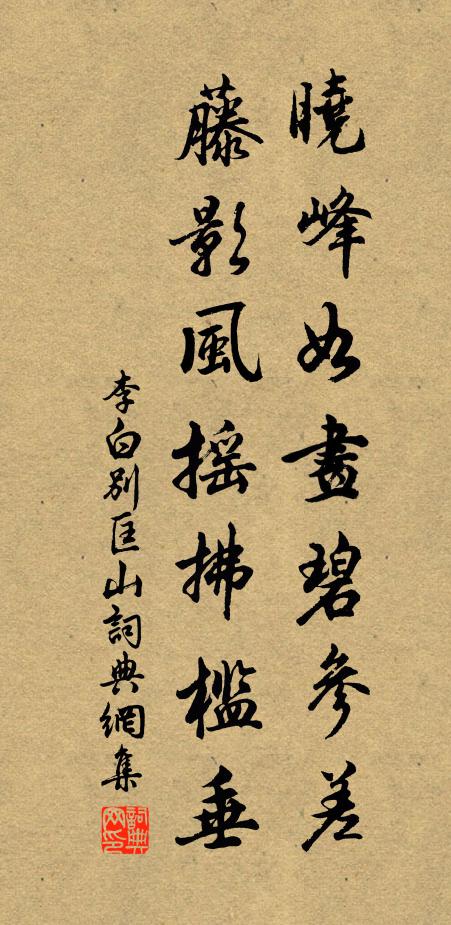 曉峰如畫碧參差
藤影風摇拂檻垂
李白别匡山詞典網集
詞典网印